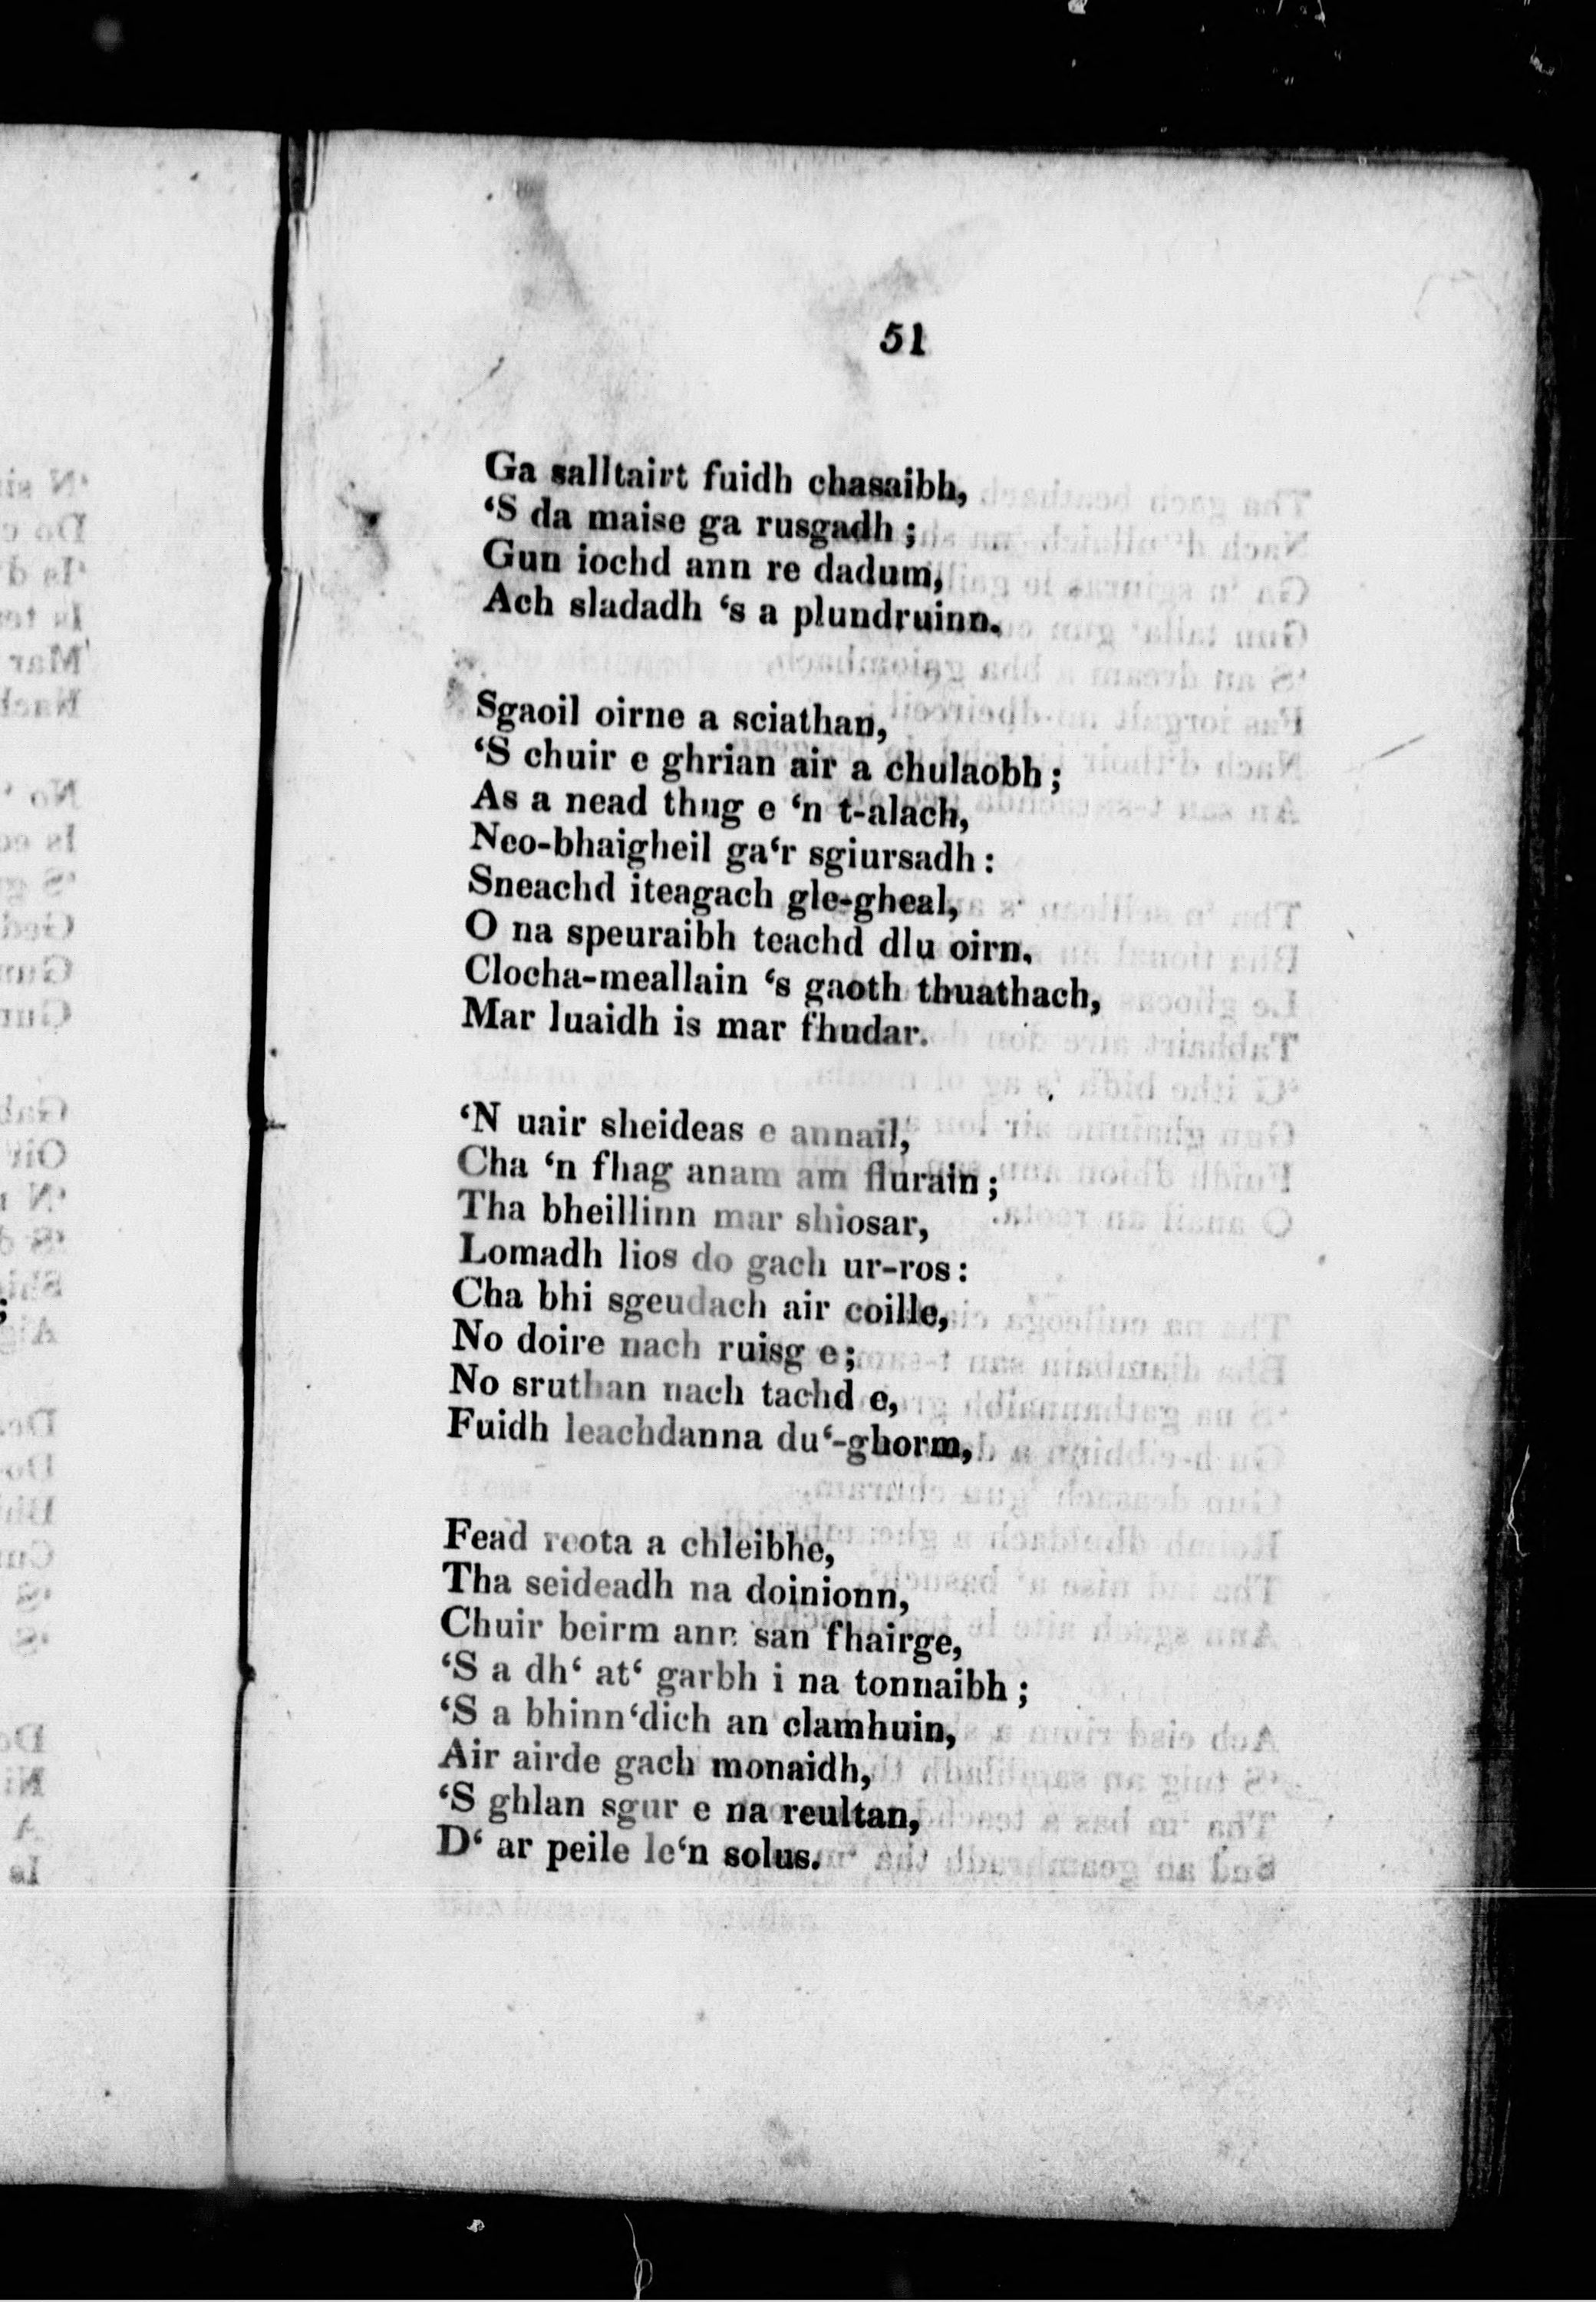 51
Ga salltairt fuidh chasaibh,
‘S da maise ga rusgadh ;
Gun iochd ann re dadum,
Ach sladadh ‘s a plundruinn.
Sgaoil oirne a sciathan,
‘S chuir e ghrian air a chulaobh ;
As a nead thug e ‘n t-alach,
Neo-bhaigheil ga‘r sgiursadh :
Sneachd iteagach gle-gheal,
O na speuraibh teachd dlu oirn.
Clocha-meallain ‘s gaoth thuathach,
Mar luaidh is mar fhudar.
‘N uair sheideas e annail,
Cha ‘n fhag anam am flurain ;
Tha bheillinn mar shiosar,
Lomadh lios do gach ur-ros :
Cha bhi sgeudach air coille,
No doire nach ruisg e ;
No sruthan nach tachd e,
Fuidh leachdanna du‘-ghorm,
Fead reota a chleibhe,
Tha seideadh na doinionn,
Chuir beirm ann san fhairge,
‘S a dh‘ at‘ garbh i na tonnaibh ;
‘S a bhinn‘dich an clamhuin,
Air airde gach monaidh,
‘S ghlan sgur e na reultan,
D‘ ar peile le‘n solus.